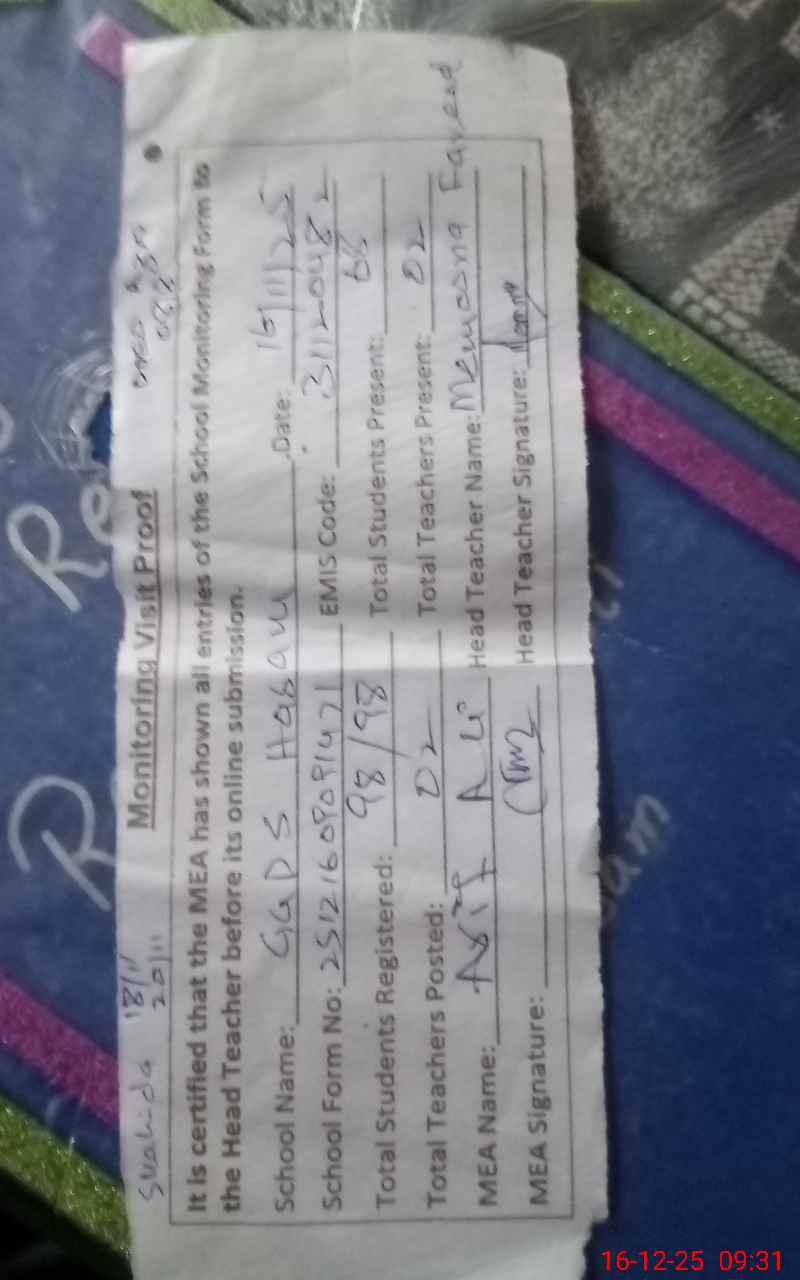 Shahida 18/11
20/11
Monitoring Visit Proof
It is certified that the MEA has shown all entries of the School Monitoring Form to
the Head Teacher before its online submission.
School Name: GGPS Hasam Date: 16/11/25
School Form No: 25121609091471 EMIS Code: 31120482
Total Students Registered: 98/98 Total Students Present:
Total Teachers Posted: 02 Total Teachers Present: 02
MEA Name: Asif Ali Head Teacher Name: Memoona Fareed
MEA Signature: Head Teacher Signature:
16-12-25 09:31